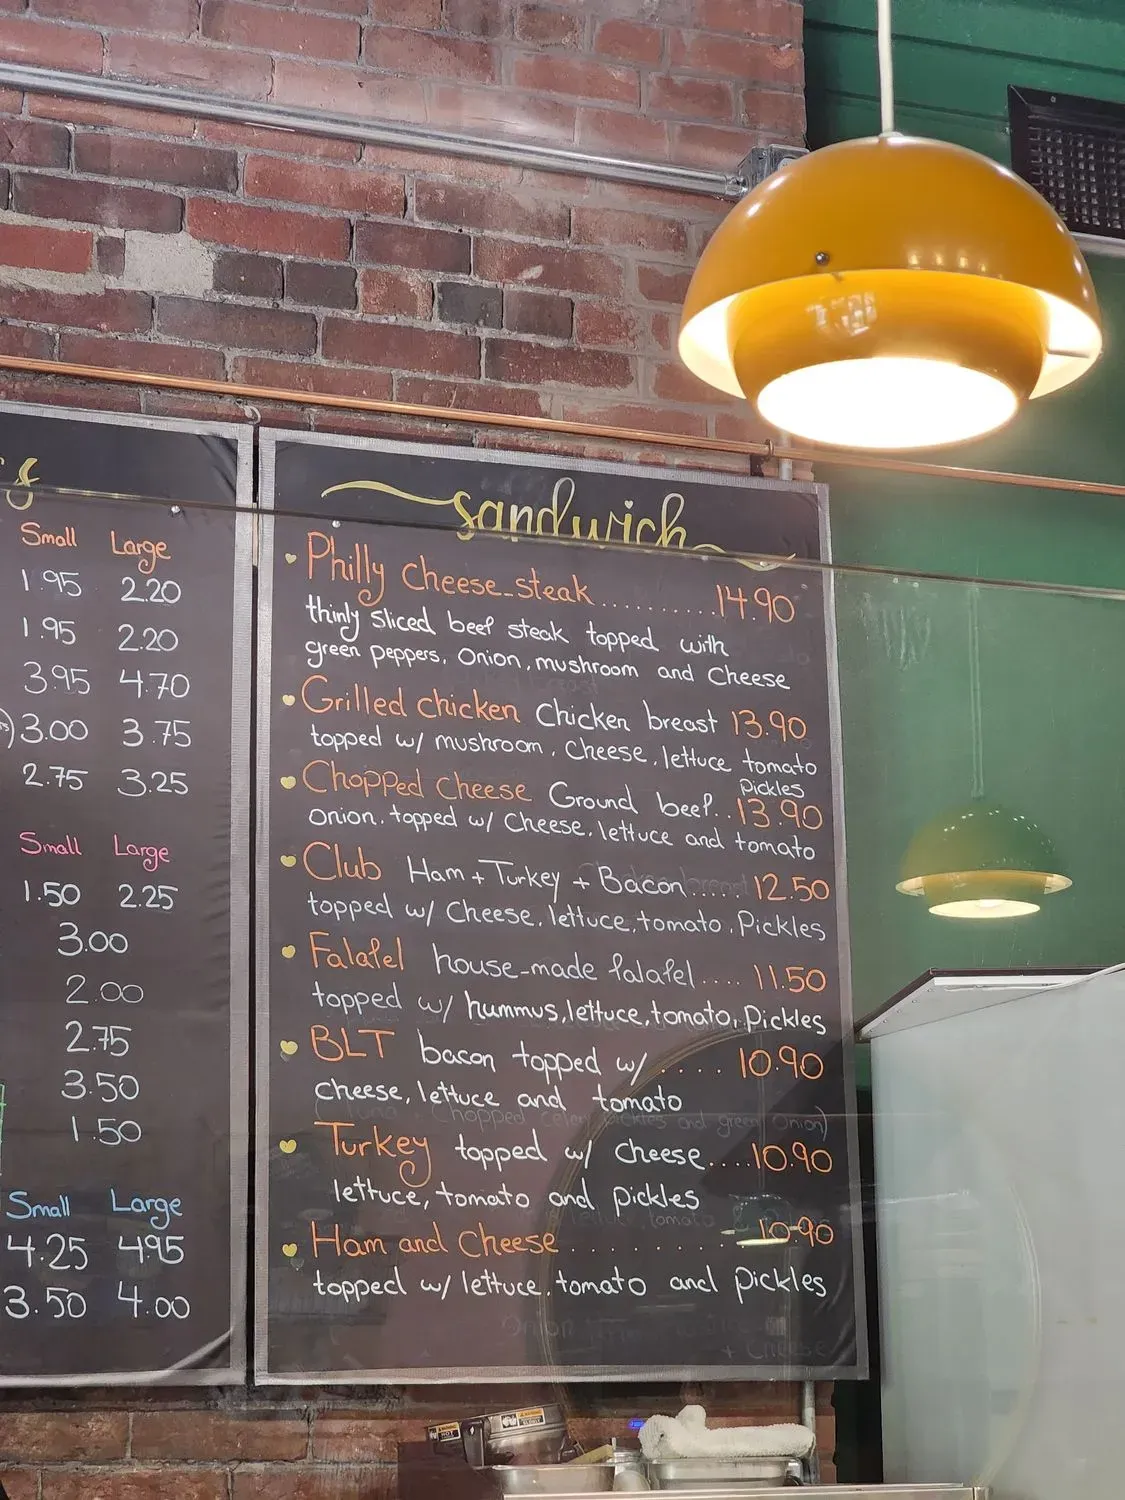 s
Small Large
1.95 2.20
1.95 2.20
3.95 4.70
3.00 3.75
2.75 3.25
Small Large
1.50 2.25
3.00
2.00
2.75
3.50
1.50
Small Large
4.25 4.95
3.50 4.00
sandwich
Philly Cheese-steak..........14.90
thinly sliced beef steak topped with
green peppers, Onion, mushroom and Cheese
Grilled chicken Chicken breast 13.90
topped w/ mushroom, Cheese, lettuce tomato
Pickles
Chopped Cheese Ground beef..13.90
Onion, topped w/ Cheese, lettuce and tomato
Club Ham + Turkey + Bacon.....12.50
topped w/ Cheese, lettuce, tomato, Pickles
Falafel house-made falafel.... 11.50
topped w/ hummus, lettuce, tomato, Pickles
BLT bacon topped w/ .... 10.90
Cheese, lettuce and tomato
Turkey topped w/ Cheese....10.90
lettuce, tomato and pickles
Ham and Cheese.......... 10.90
topped w/ lettuce, tomato and pickles